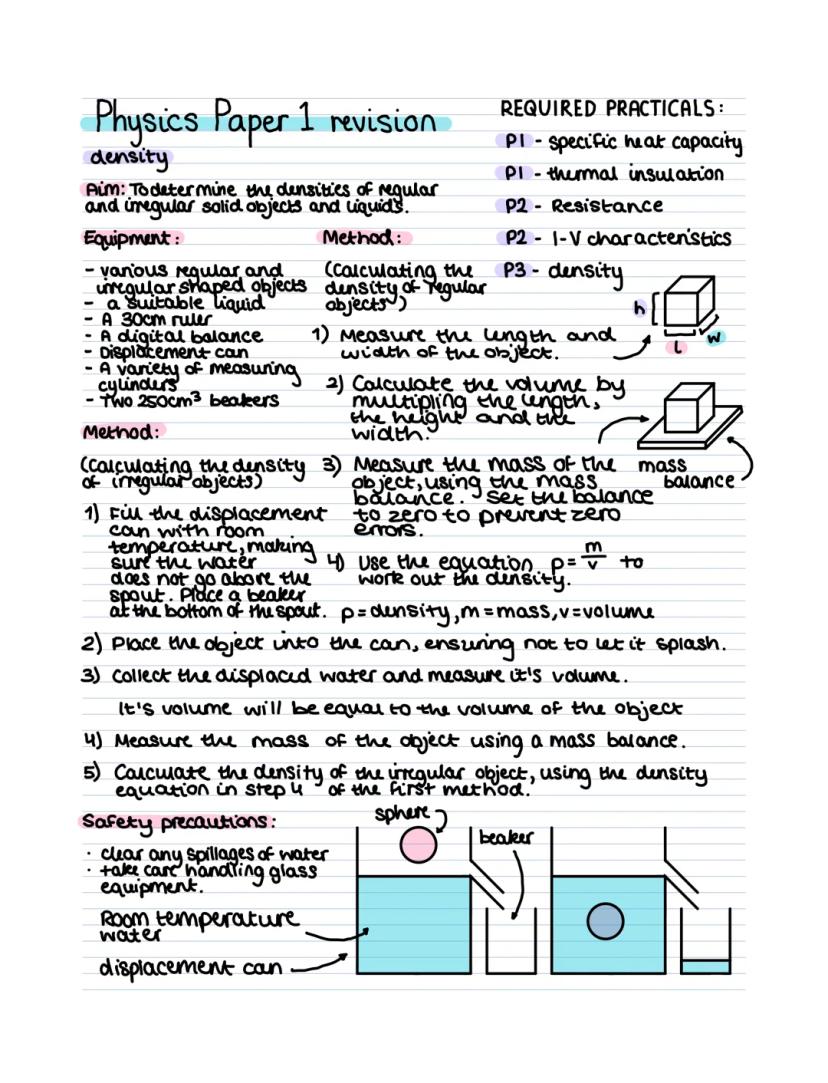 Physics Paper 1 revision
density
Aim: To determine the densities of regular
and irregular solid objects and liquids.
REQUIRED PRACTICALS:
P1 - specific heat capacity
P1 - thermal insulation
P2 - Resistance
P2 - I-V characteristics
P3 - density
Equipment:
- various regular and
irregular shaped objects
- a suitable liquid
- A 30cm ruler
- A digital balance
- Displacement can
- A variety of measuring
cylinders
- Two 250cm³ beakers
Method:
(Calculating the
density of regular
objects)
1) Measure the length and
width of the object.
h
l
w
2) Calculate the volume by
multipling the length,
the height and the
width.
3) Measure the mass of the
object, using the mass
balance. Set the balance
to zero to prevent zero
errors.
mass
balance
4) Use the equation p = m/v to
work out the density.
p = density, m = mass, v = volume
Method:
(Calculating the density
of irregular objects)
1) Fill the displacement
can with room
temperature, making
sure the water
does not go above the
spout. Place a beaker
at the bottom of the spout.
2) Place the object into the can, ensuring not to let it splash.
3) Collect the displaced water and measure it's volume.
It's volume will be equal to the volume of the object
4) Measure the mass of the object using a mass balance.
5) Calculate the density of the irregular object, using the density
equation in step 4 of the first method.
Safety precautions:
· clear any spillages of water
· take care handling glass
equipment.
Room temperature
water
displacement can
sphere
beaker